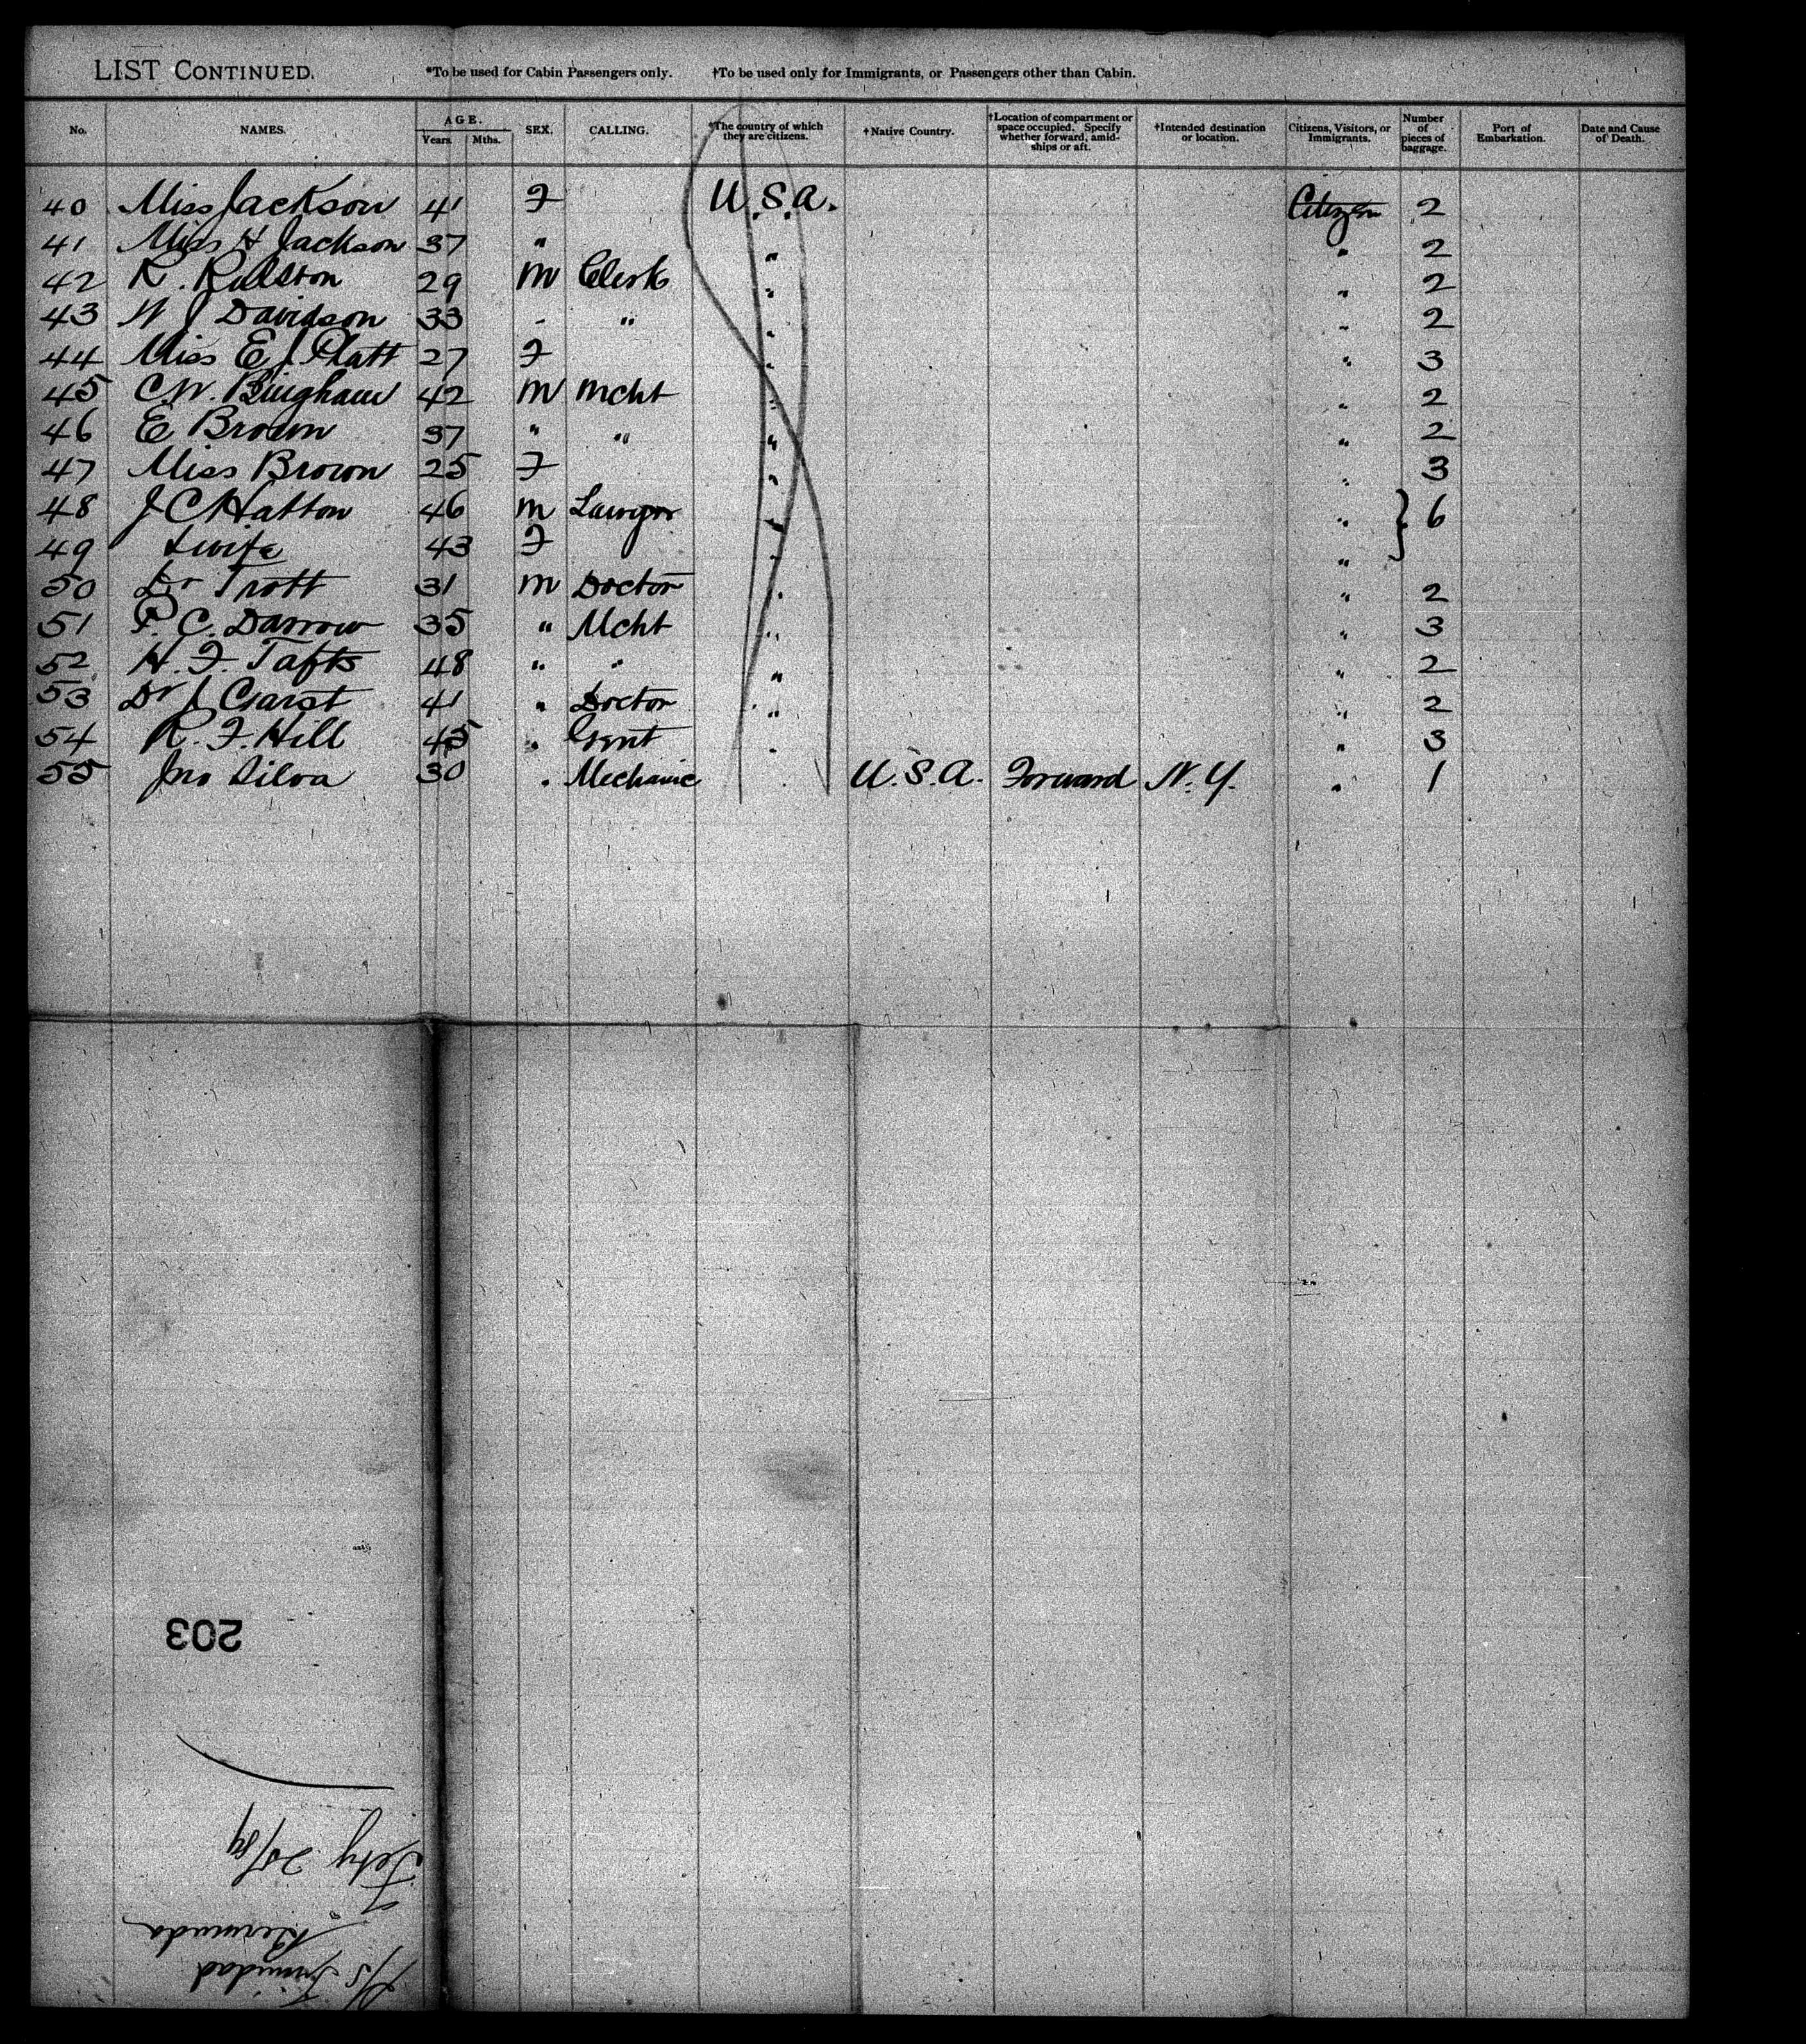 LIST CONTINUED. *To be used for Cabin Passengers only. †To be used only for Immigrants, or Passengers other than Cabin.
No. NAMES. AGE. Years Mths. SEX. CALLING. *The country of which they are citizens. †Native Country. †Location of compartment or space occupied. Specify whether forward, amidships or aft. †Intended destination or location. Citizens, Visitors, or Immigrants. Number of pieces of baggage. Port of Embarkation. Date and Cause of Death.
40 Miss Jackson 41 F U.S.A. Citizen 2
41 Miss H Jackson 37 " " " 2
42 R. Ralston 29 M Clerk " " 2
43 W J Davidson 33 " " " " 2
44 Miss E J Platt 27 F " " 3
45 C W. Bingham 42 M Mcht " " 2
46 E Brown 37 " " " " 2
47 Miss Brown 25 F " " 3
48 J C Hatton 46 M Lawyer " " } 6
49 & wife 43 F " "
50 Dr Trott 31 M Doctor " " 2
51 P. C. Darrow 35 " Mcht " " 3
52 H. F. Tafts 48 " " " " 2
53 Dr J Garst 41 " Doctor " " 2
54 R. F. Hill 45 " Gent " " 3
55 Jno Silva 30 " Mechanic U.S.A. Forward N.Y. " 1
203
S/S Trinidad
Bermuda
Feby 20/89